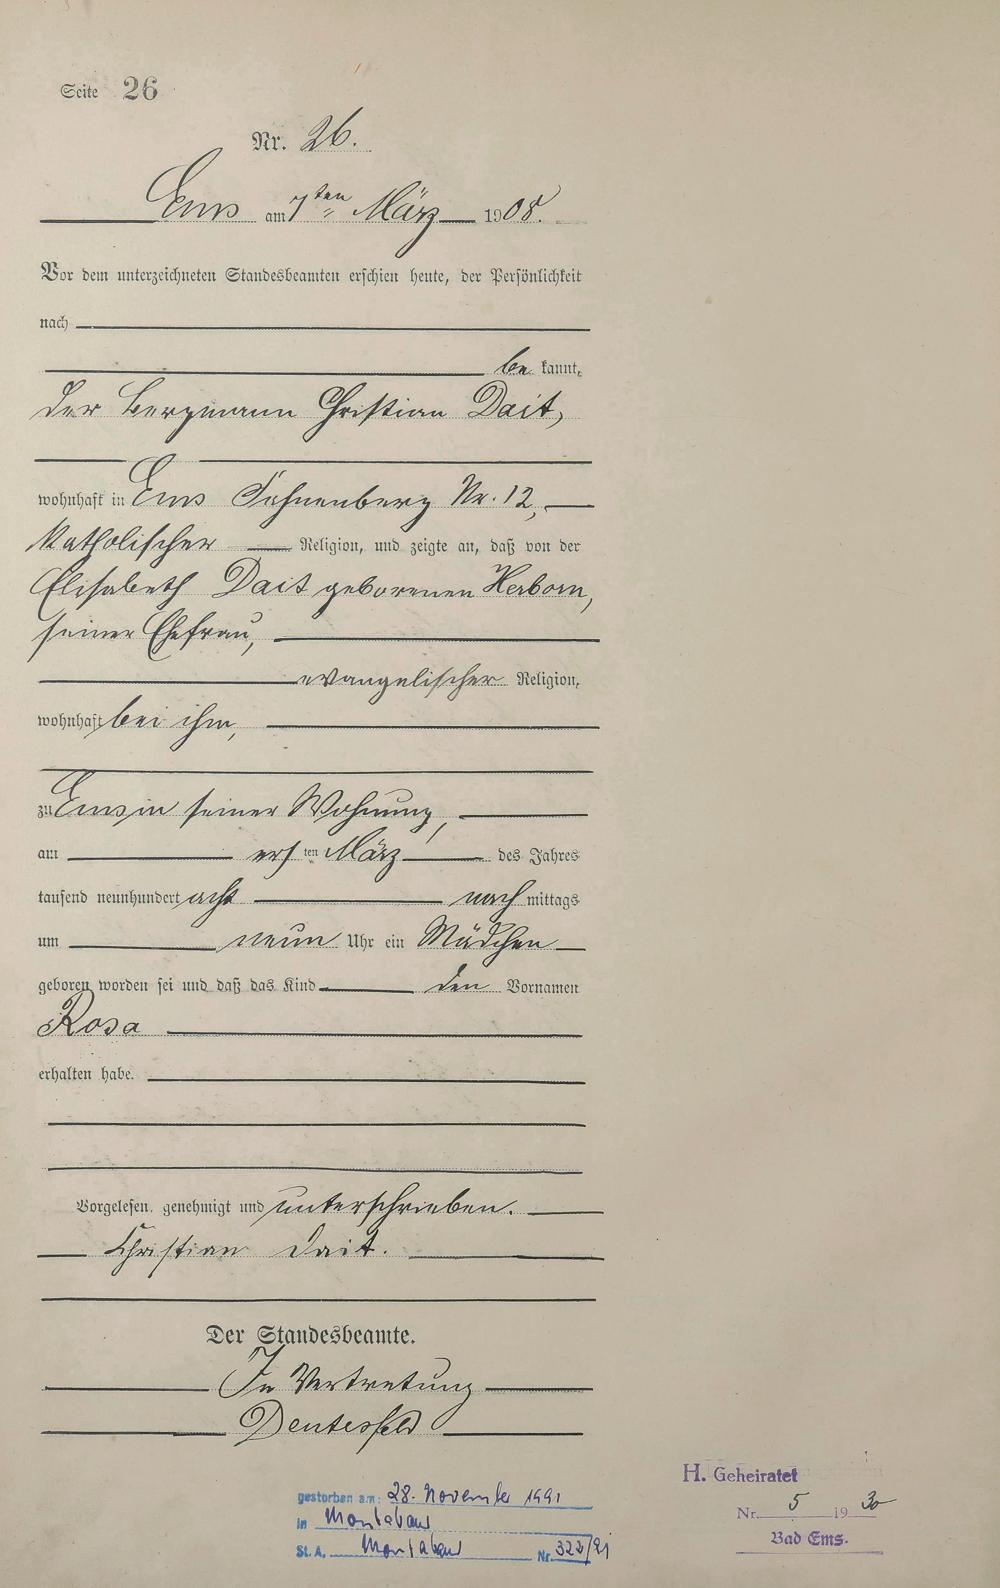 Seite 26
Nr. 26.
Ems am 7ten März 1908.
Vor dem unterzeichneten Standesbeamten erschien heute, der Persönlichkeit
nach
be kannt,
der Bergmann Christian Dait,
wohnhaft in Ems Nr. 12,
katholischer Religion, und zeigte an, daß von der
Elisabeth Dait geborenen Herborn,
seiner Ehefrau,
evangelischer Religion,
wohnhaft bei ihm,
zu Ems in seiner Wohnung,
am ersten März des Jahres
tausend neunhundert acht nach mittags
um neun Uhr ein Mädchen
geboren worden sei und daß das Kind den Vornamen
Rosa
erhalten habe.
Vorgelesen, genehmigt und unterschrieben.
Christian Dait.
Der Standesbeamte.
In Vertretung
gestorben am: 28. November 1991
in Montabaur
St. A. Montabaur Nr. 322/91
H. Geheiratet
Nr. 5 1930
Bad Ems.